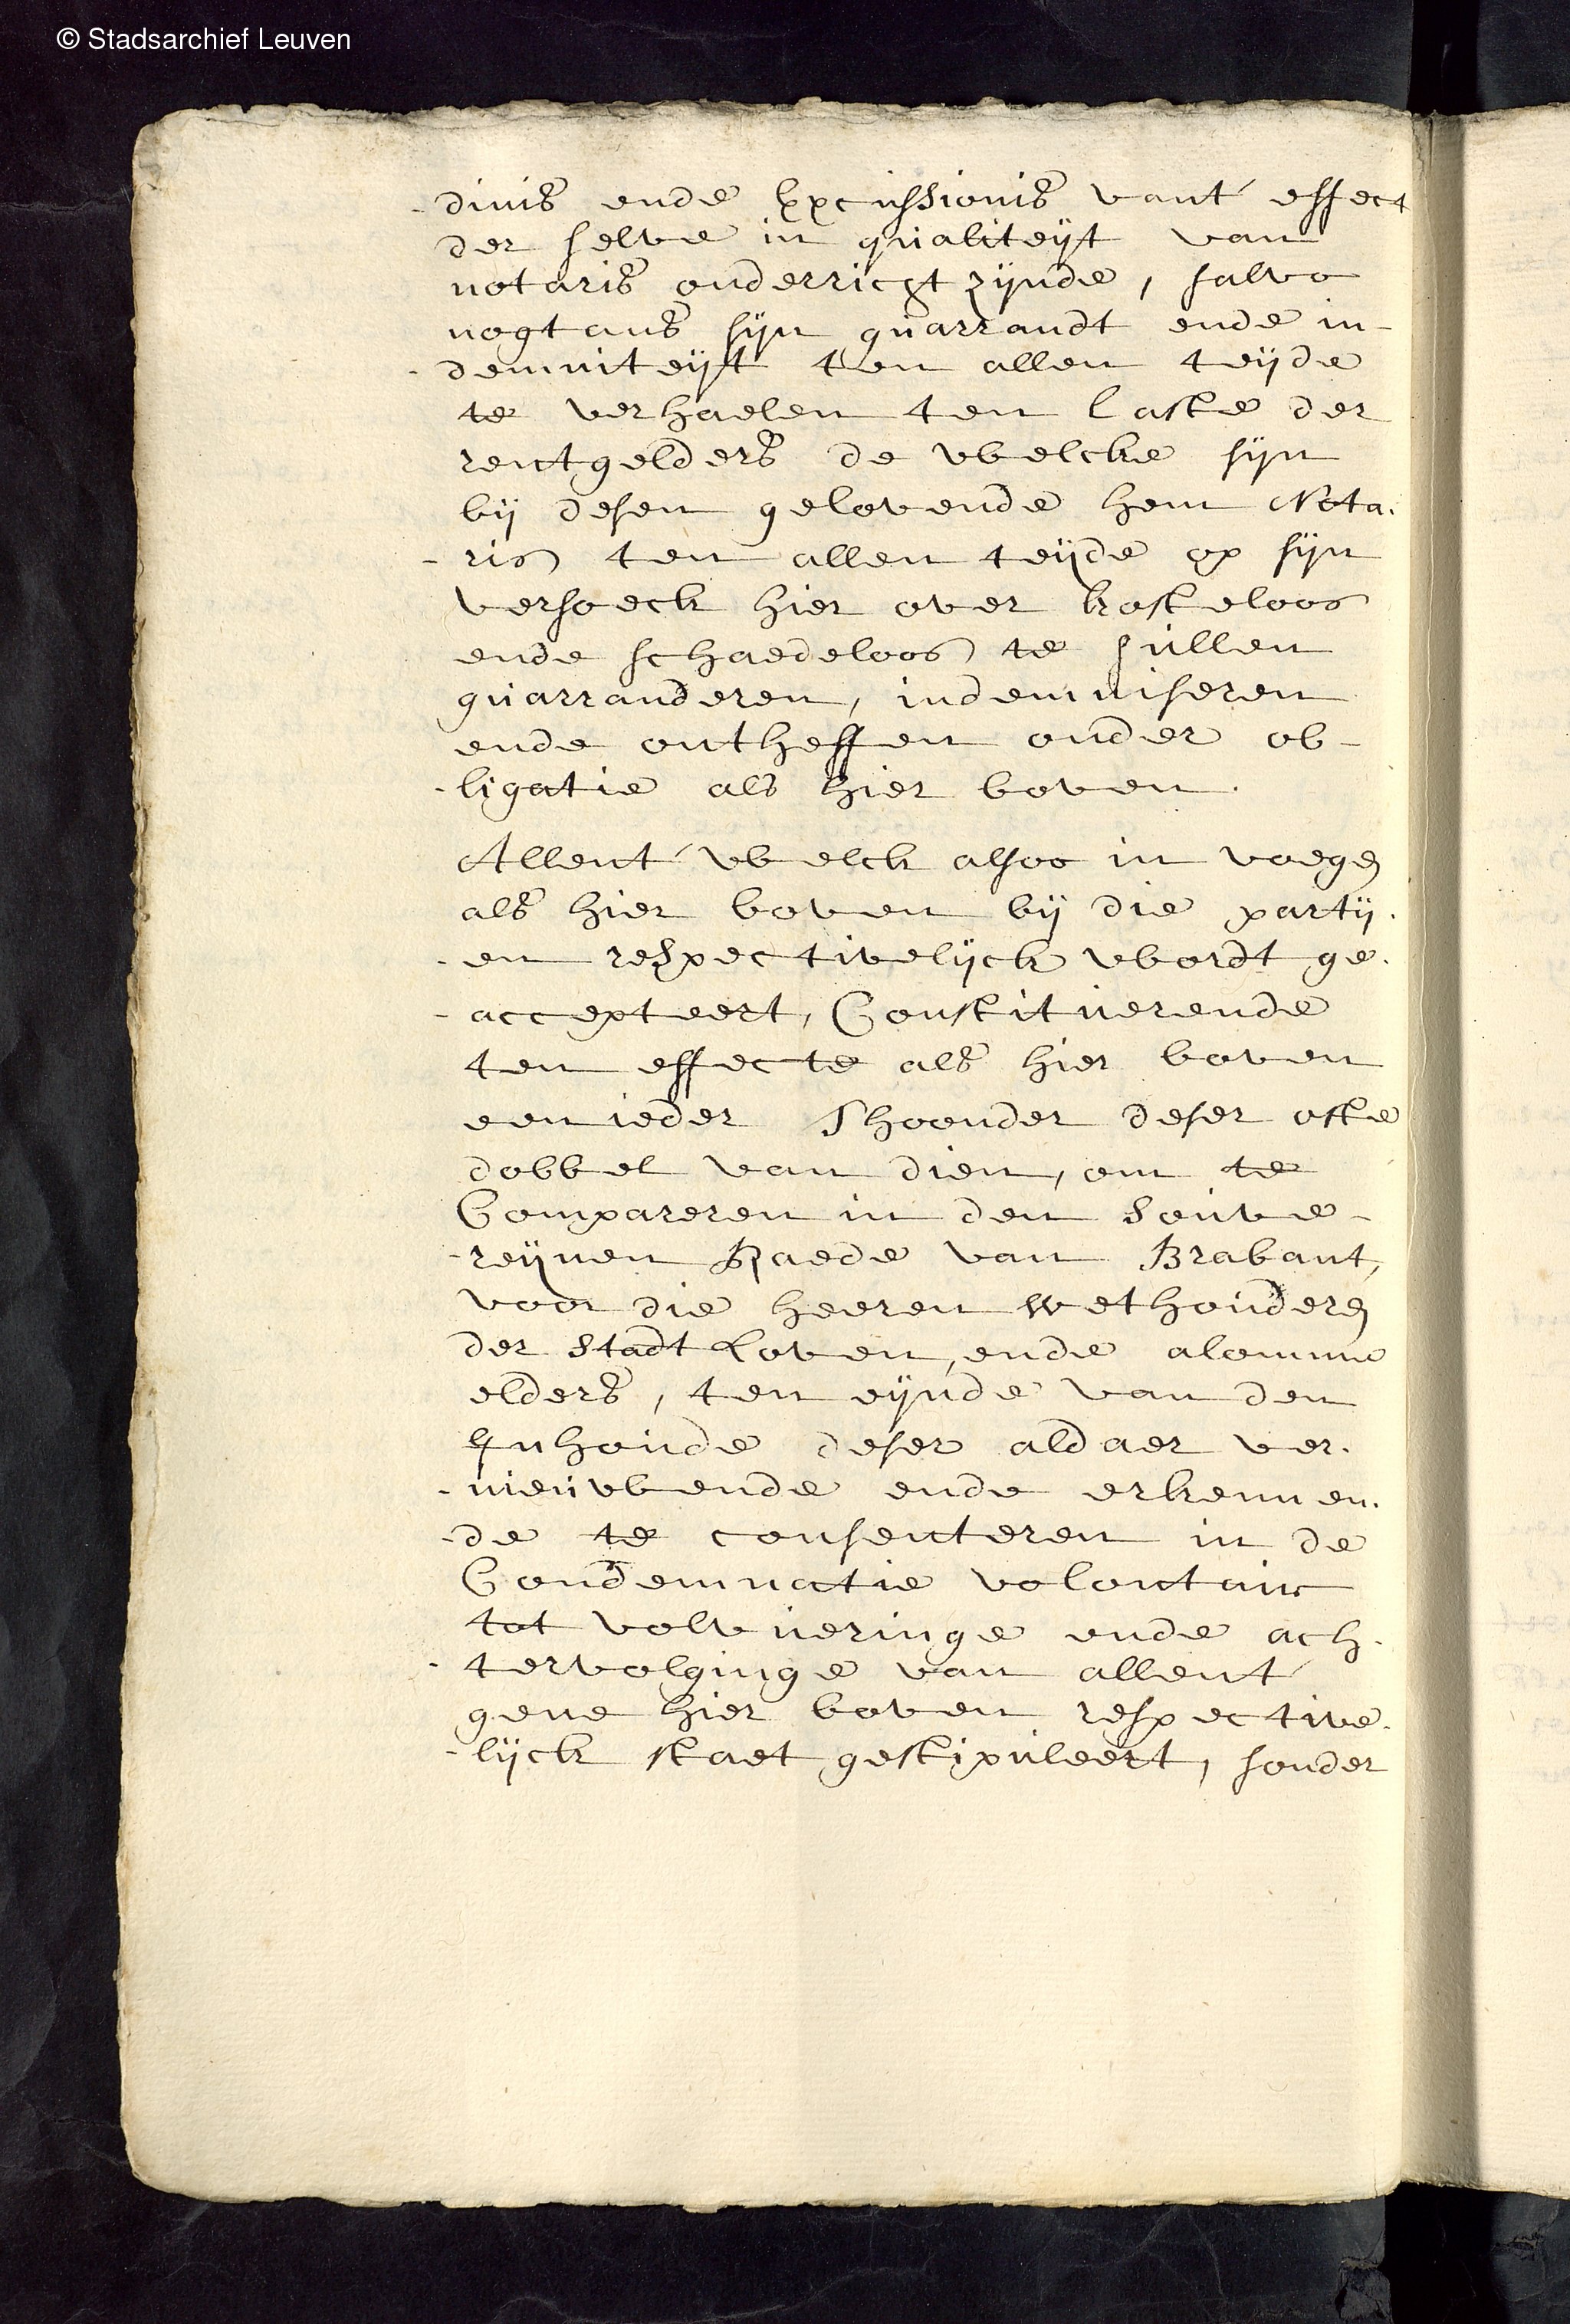 © Stadsarchief Leuven
-dinis ende Excussionis vant' effect
der selve in qualiteijt van
notaris onderricgt zijnde, salvo
nogtans sijn guarrandt ende in-
-demniteijt ten allen teijde
te verhaelen ten laste der
rentgelders de welcke sijn
bij desen gelovende hem Nota-
-ris ten allen teijde op sijn
versoeck hier over kosteloos
ende schaedeloos te sullen
guarranderen, indemniseren
ende ontheffen onder ob-
-ligatie als hier boven.
Allent' welck alsoo in voegen
als hier boven bij die partij-
-en respectivelijck wordt ge-
-accepteert, Constituerende
ten effecte als hier boven
een ieder Thoonder deser ofte
dobbel van dien, om te
Compareren in den Souve-
-reijnen Raede van Brabant,
voor die heeren wethouderen
der Stadt Loven, ende alomme
elders, ten eijnde van den
Inhoude deser aldaer ver-
-nieuwende ende erkennen-
-de te consenteren in de
Condemnatie volontair
tot volvueringe ende ach-
-tervolginge van allent'
gene hier boven respective-
-lijck staet gestipuleert, sonder